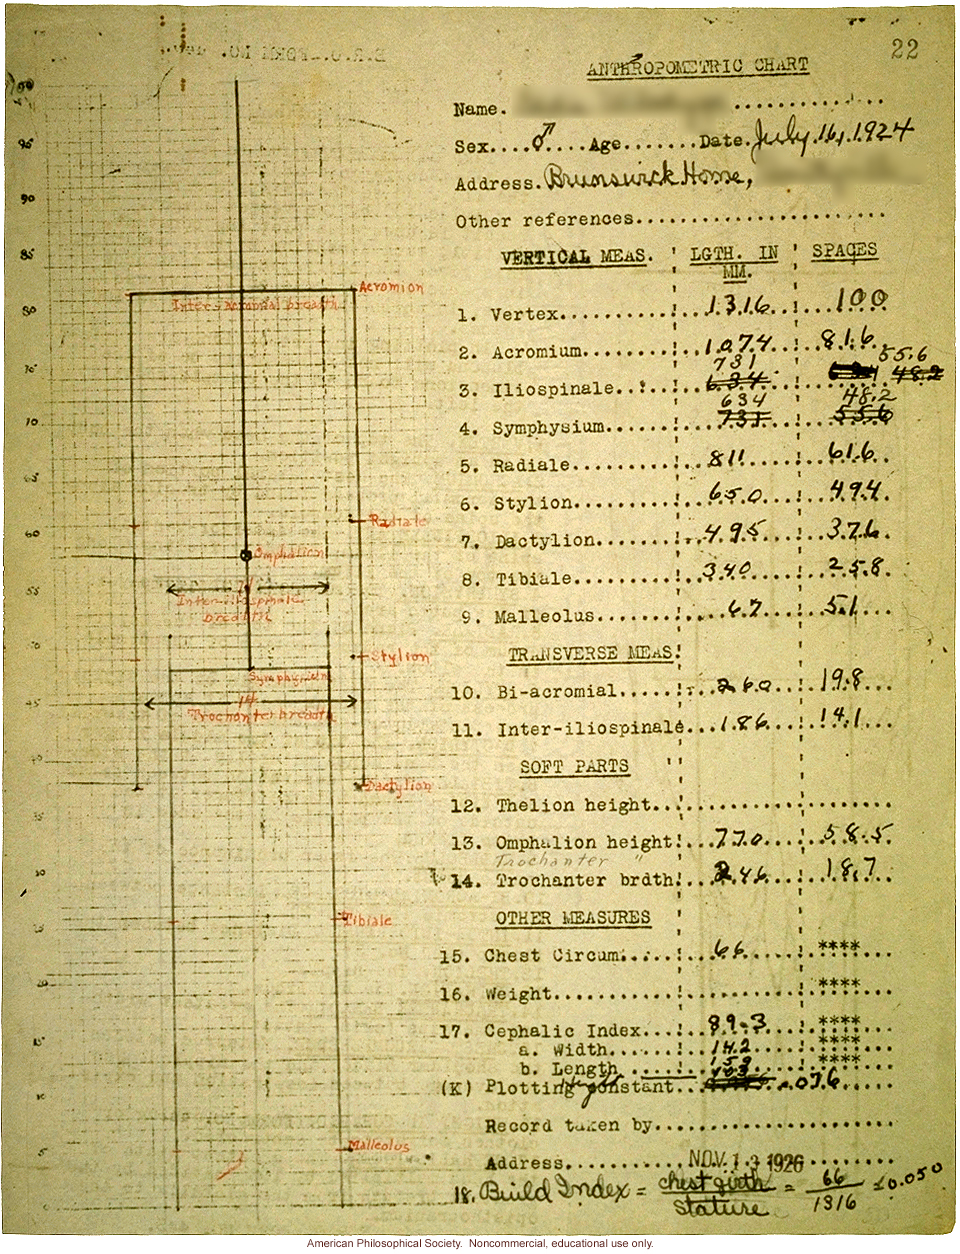 22
ANTHROPOMETRIC CHART
Name.
Sex....♂....Age.......Date. July 16, 1924
Address. Brunswick Home,
Other references
VERTICAL MEAS. LGTH. IN MM. SPACES
1. Vertex 1316 100
2. Acromium 1074 81.6
731 55.6
3. Iliospinale 634 48.2
634 48.2
4. Symphysium 731 55.6
5. Radiale 811 61.6
6. Stylion 650 49.4
7. Dactylion 495 37.6
8. Tibiale 340 25.8
9. Malleolus 67 5.1
TRANSVERSE MEAS.
10. Bi-acromial 260 19.8
11. Inter-iliospinale 186 14.1
SOFT PARTS
12. Thelion height
13. Omphalion height 770 58.5
Trochanter "
14. Trochanter brdth. 246 18.7
OTHER MEASURES
15. Chest Circum. 66 ****
16. Weight ****
17. Cephalic Index 89.3 ****
a. Width 142 ****
b. Length 159
(K) Plotting constant .076
Record taken by
Address NOV. 13 1926
18. Build Index = chest girth / stature = 66 / 1316 = 0.050
100
95
90
85
80
75
70
65
60
55
50
45
40
35
30
25
20
15
10
5
0
Acromion
Inter-acromial breadth
Radiale
Omphalion
Inter-iliospinale
breadth
Stylion
Symphysion
14
Trochanter breadth
Dactylion
Tibiale
Malleolus
American Philosophical Society. Noncommercial, educational use only.